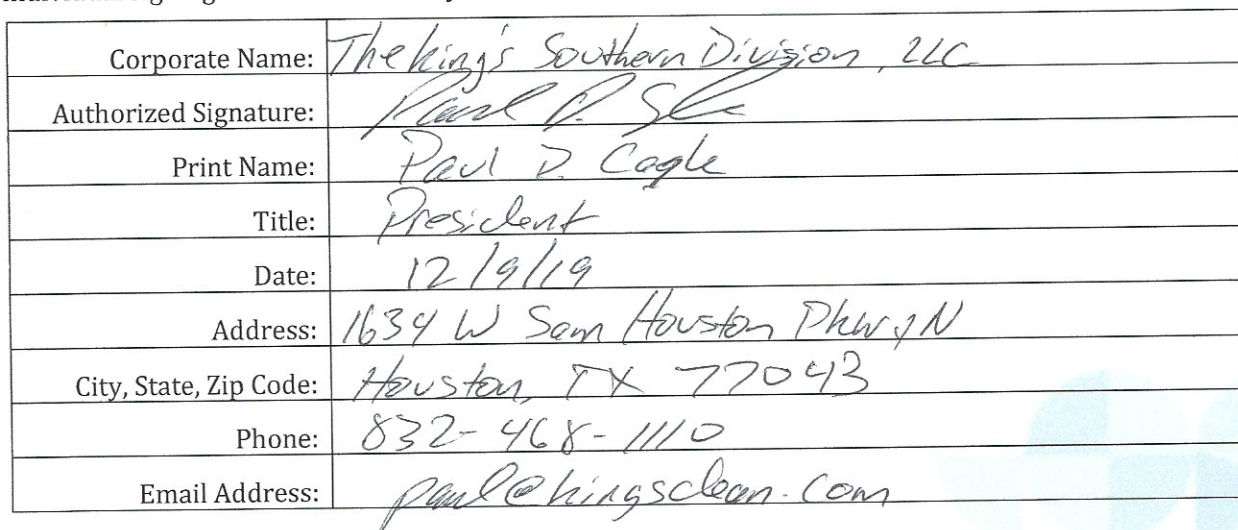 Corporate Name: The King's Southern Division, LLC
Authorized Signature: Paul D. Cagle
Print Name: Paul D. Cagle
Title: President
Date: 12/9/19
Address: 1634 W Sam Houston Pkwy N
City, State, Zip Code: Houston, TX 77043
Phone: 832-468-1110
Email Address: paul@kingsclean.com